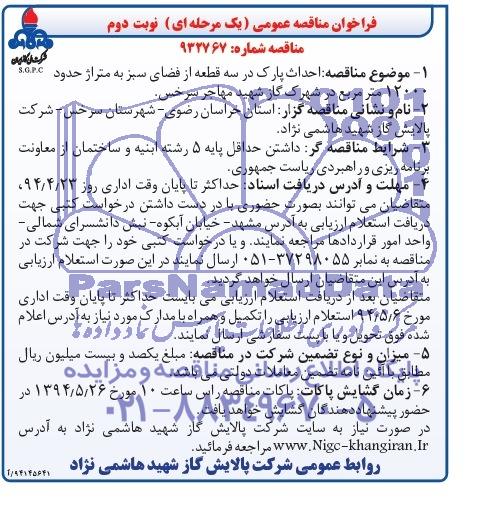 فراخوان مناقصه عمومی (یک مرحله ای) نوبت دوم
مناقصه شماره: ۹۳۲۷۶۷
شرکت ملی گاز ایران
S.G.P.C
۱- موضوع مناقصه: احداث پارک در سه قطعه از فضای سبز به متراژ حدود
۱۲۰۰۰ متر مربع در شهرک گاز شهید مهاجر سرخس.
۲- نام و نشانی مناقصه گزار: استان خراسان رضوی- شهرستان سرخس- شرکت
پالایش گاز شهید هاشمی نژاد.
۳- شرایط مناقصه گر: داشتن حداقل پایه ۵ رشته ابنیه و ساختمان از معاونت
برنامه ریزی و راهبردی ریاست جمهوری.
۴- مهلت و آدرس دریافت اسناد: حداکثر تا پایان وقت اداری روز ۹۴/۴/۲۳،
متقاضیان می توانند بصورت حضوری با در دست داشتن درخواست کتبی جهت
دریافت استعلام ارزیابی به آدرس مشهد- خیابان آبکوه- نبش دانشسرای شمالی-
واحد امور قراردادها مراجعه نمایند. و یا درخواست کتبی خود را جهت شرکت در
مناقصه به نمابر ۳۷۲۹۸۰۵۵-۰۵۱ ارسال نمایند در این صورت استعلام ارزیابی
به آدرس این متقاضیان ارسال خواهد گردید.
متقاضیان بعد از دریافت استعلام ارزیابی می بایست حداکثر تا پایان وقت اداری
مورخ ۹۴/۵/۶ استعلام ارزیابی را تکمیل و همراه با مدارک مورد نیاز به آدرس اعلام
شده فوق تحویل و یا با پست سفارشی ارسال نمایند.
۵- میزان و نوع تضمین شرکت در مناقصه: مبلغ یکصد و بیست میلیون ریال
مطابق با آئین نامه تضمین معاملات دولتی می باشد.
۶- زمان گشایش پاکات: پاکات مناقصه راس ساعت ۱۰ مورخ ۱۳۹۴/۵/۲۶ در
حضور پیشنهاددهندگان گشایش خواهد یافت.
در صورت نیاز به سایت شرکت پالایش گاز شهید هاشمی نژاد به آدرس
www.Nigc-khangiran.Ir مراجعه فرمائید.
روابط عمومی شرکت پالایش گاز شهید هاشمی نژاد
۹۴۱۴۵۶۴۱/آ
ParsNamadData
پایگاه اطلاع رسانی مناقصه و مزایده
۰۲۱-۸۸۳۴۹۶۷۰-۵